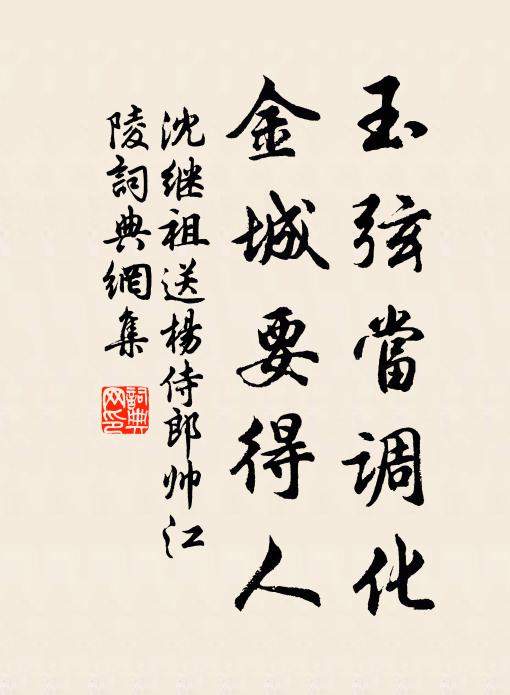 玉弦當调化
金城要得人
沈继祖送楊侍郎帅江
陵詞典網集
詞典
网印